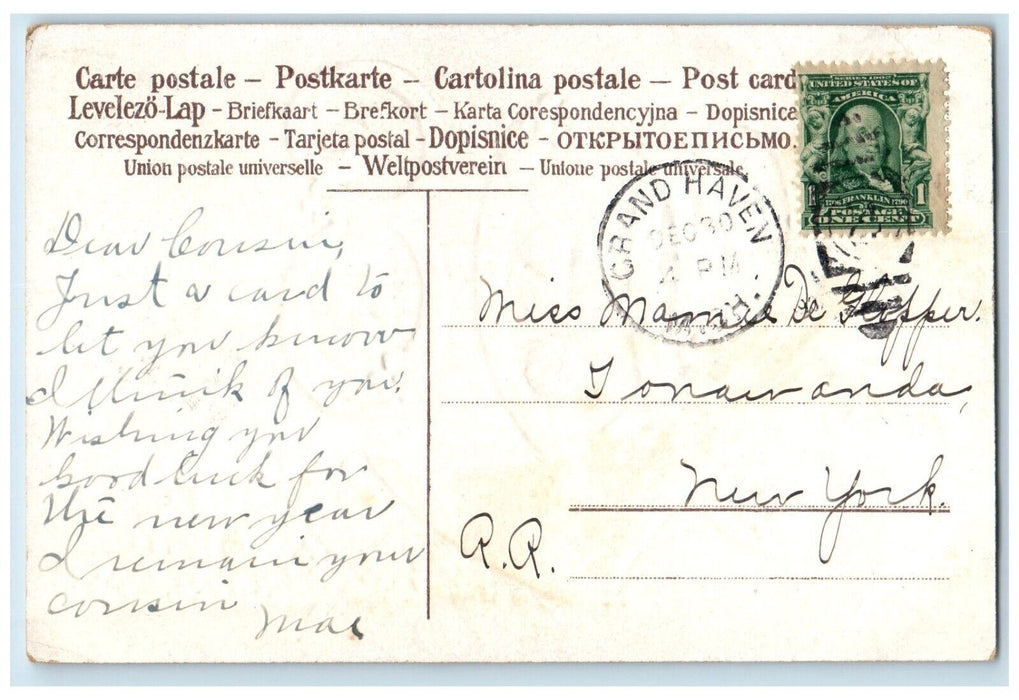 Carte postale – Postkarte – Cartolina postale – Post card
Levelező-Lap - Briefkaart – Brefkort – Karta Corespondencyjna – Dopisnica
Correspondenzkarte - Tarjeta postal - Dopisnice - ОТКРЫТОЕПИСЬМО.
Union postale universelle – Weltpostverein – Unione postale universale
SERIES 1902
UNITED STATES OF
AMERICA
1 1706 FRANKLIN 1790 1
POSTAGE
ONE CENT
GRAND HAVEN
DEC 30
4 PM
MICH.
Dear Cousin,
Just a card to
let you know
I think of you.
Wishing you
good luck for
the new year
I remain your
cousin
Mae
Miss Mamie De
Tonawanda,
New York.
R.R.